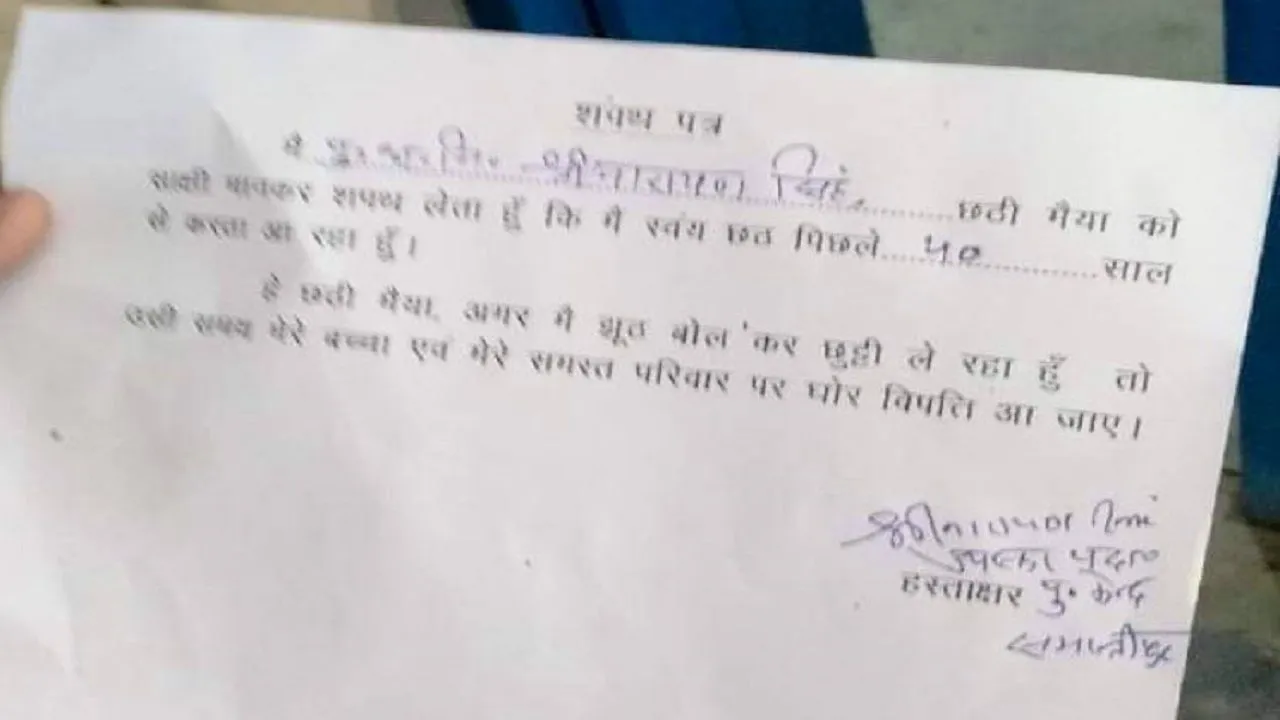 शपथ पत्र
मै पु॰अ॰नि॰ श्रीनारायण सिंह, छठी मैया को
साक्षी मानकर शपथ लेता हूँ कि मै स्वंय छठ पिछले....५०..............साल
से करता आ रहा हूँ।
हे छठी मैया, अगर मै झूठ बोल'कर छुट्टी ले रहा हूँ तो
उसी समय मेरे बच्चा एवं मेरे समस्त परिवार पर घोर विपत्ति आ जाए।
श्रीनारायण सिंह
हस्ताक्षर पु॰ केन्द्र